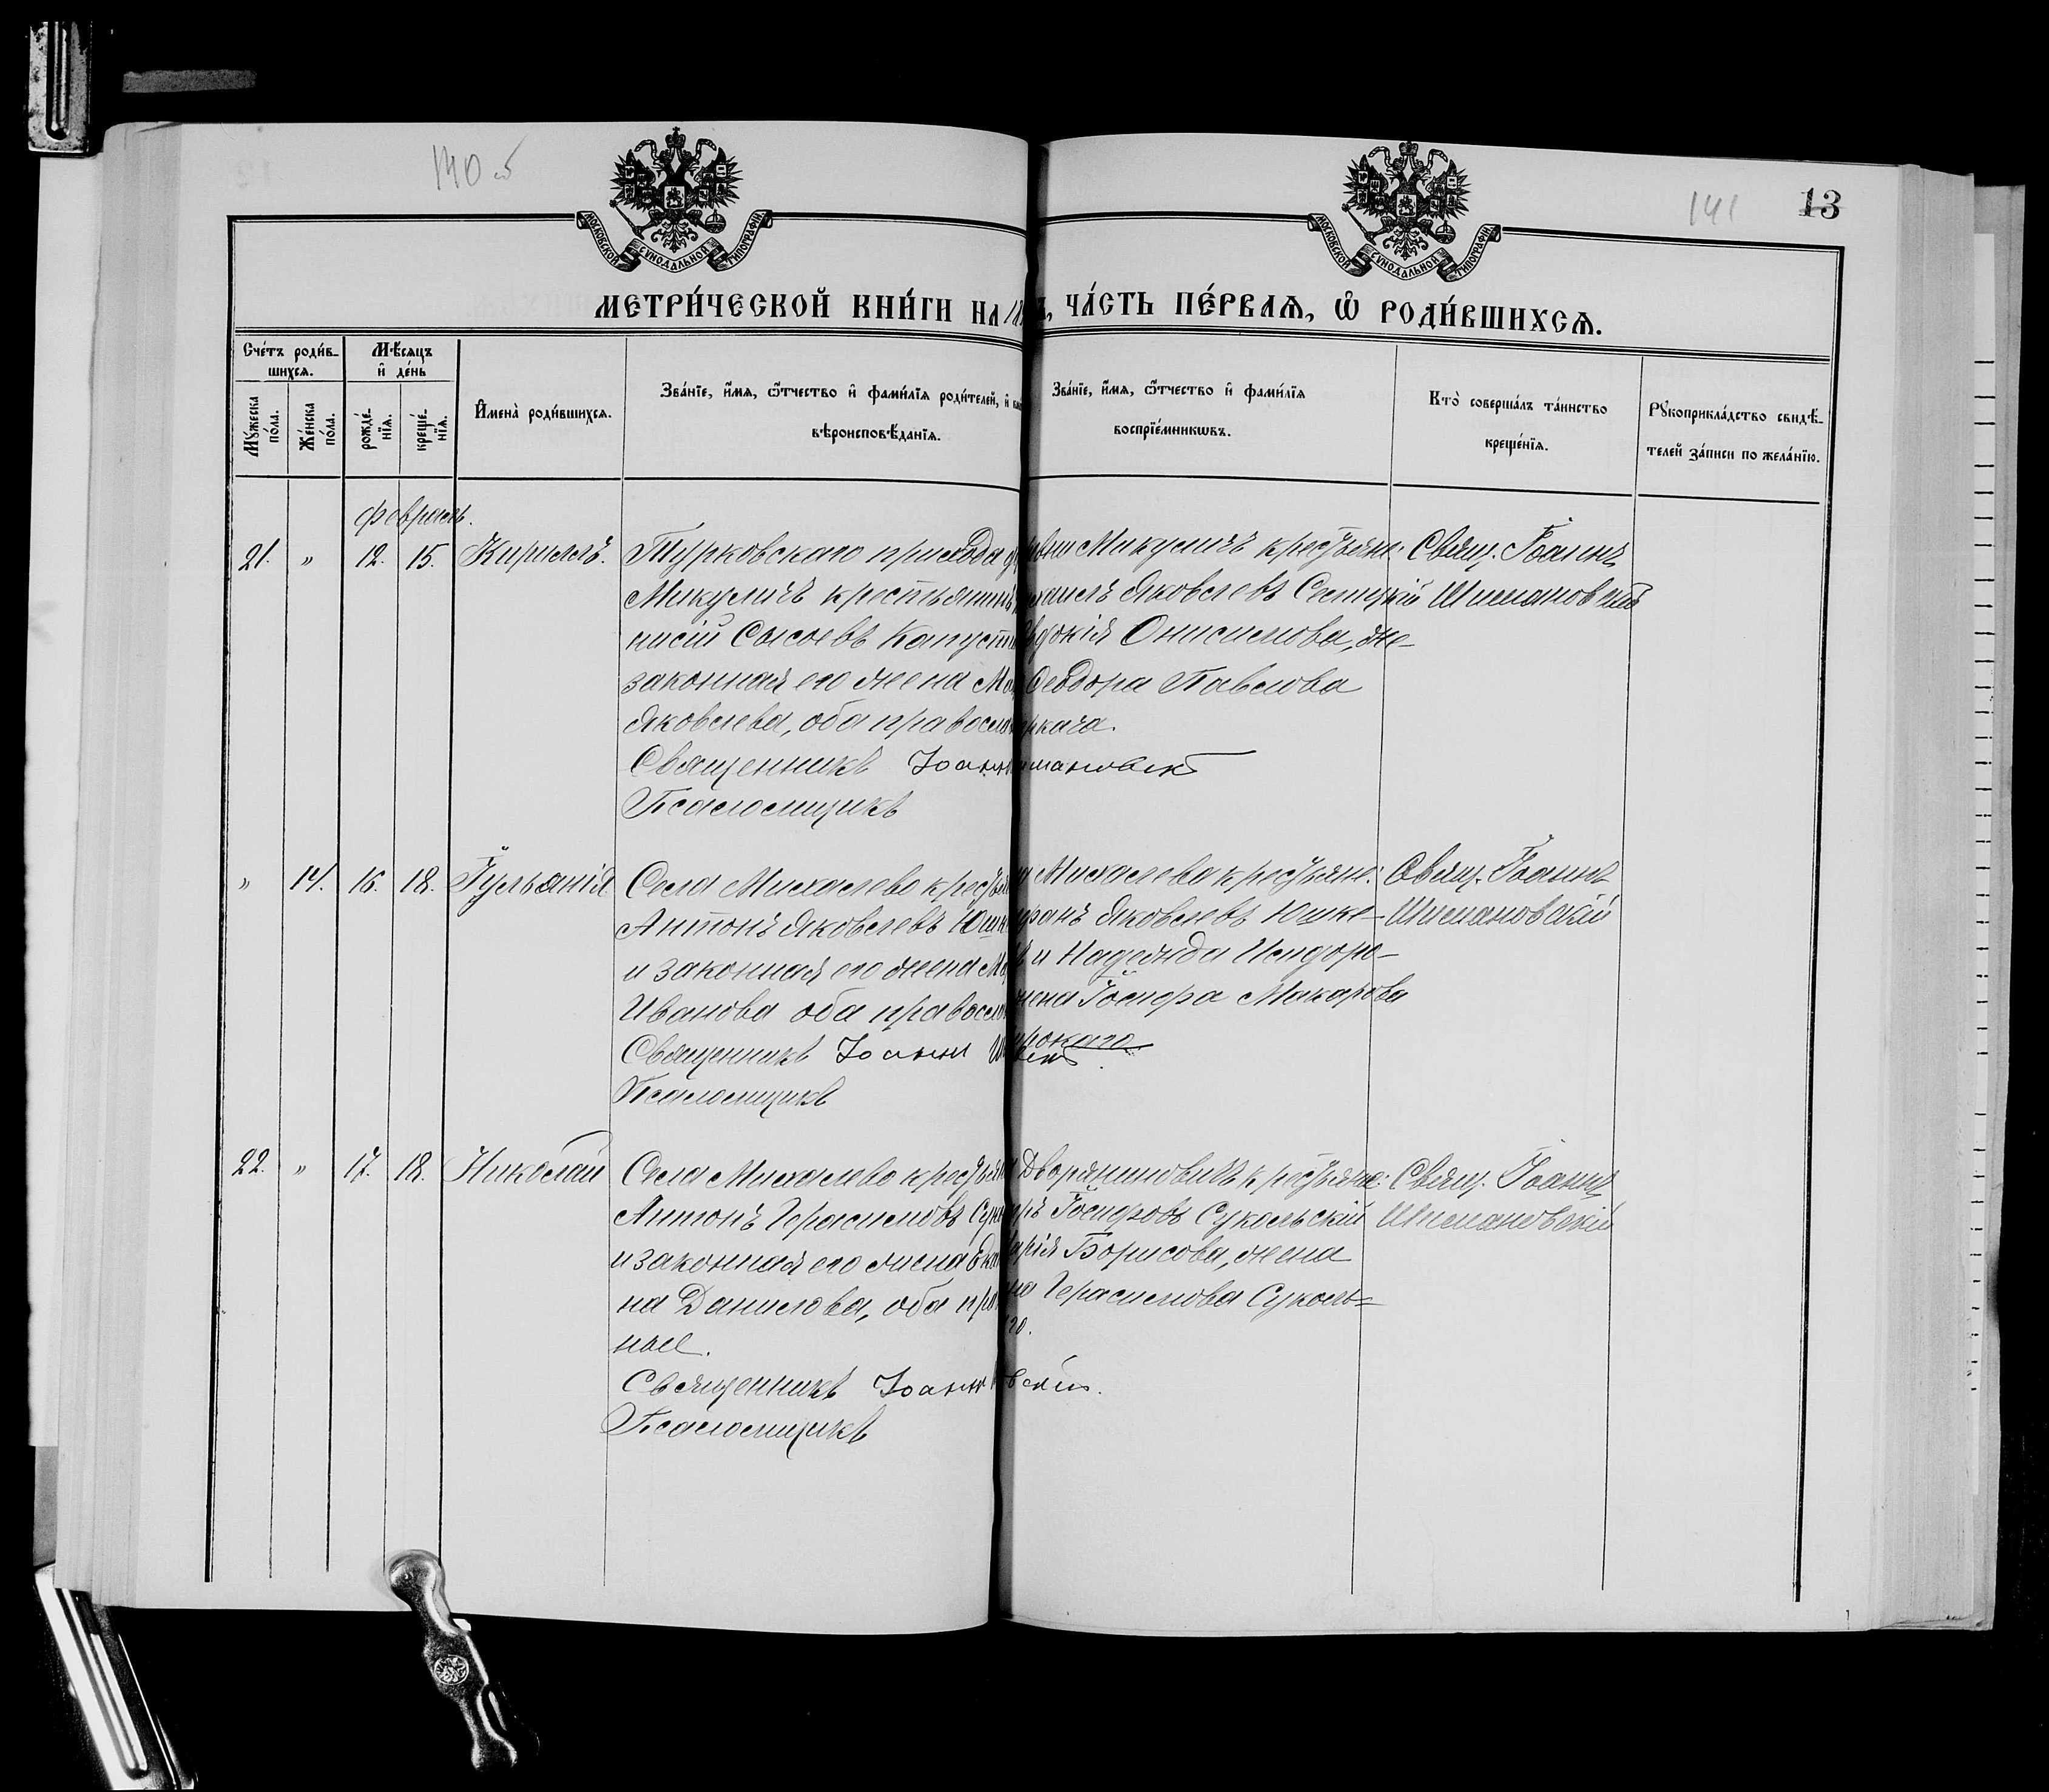 140 об
141
13
МОСКОВСКОЙ СѴНОДАЛЬНОЙ ТИПОГРАФІИ
МОСКОВСКОЙ СѴНОДАЛЬНОЙ ТИПОГРАФІИ
МЕТРИ́ЧЕСКОЙ КНИ́ГИ НА ЧА́СТЬ ПЕ́РВАѦ, Ѡ҆ РОДИ́ВШИХСѦ.
Сче́тъ роди́в-
шихсѧ.
Мꙋ́жеска по́ла.
Же́нска по́ла.
Мѣ́сѧцъ и҆ де́нь
рожде́нїѧ.
креще́нїѧ.
И҆мена̀ роди́вшихсѧ.
Зва́нїе, и҆́мѧ, ѻ҆́тчество и҆ фами́лїѧ роди́телей, и҆
вѣроисповѣ́данїѧ.
Зва́нїе, и҆́мѧ, ѻ҆́тчество и҆ фами́лїѧ
воспрїе́мникѡвъ.
Кто̀ соверша́лъ та́инство
креще́нїѧ.
Рꙋкоприкла́дство свидѣ́-
телей за́писи по жела́нїю.
февраль.
21. " 12. 15. Кириллъ.
Турковскаго прихода
Микуличъ крестьянинъ
нисій Сысоевъ Капуст
законная его жена
Яковлева, оба правосла
Священникъ Іоанн
Псаломщикъ
Микуличъ крестьяне:
Яковлевъ Сетцкій
Онисимова, же-
Ѳеодора Павлова
Свящ. Іоаннъ
Шимановскій
" 14. 16. 18. Іуліанія
Села Михалево крестья
Антонъ Яковлевъ Юшк
и законная его жена
Иванова оба правосла
Священникъ Іоанн
Псаломщикъ
Михалево крестьяне:
Яковлевъ Юшке-
и Надежда Исидоро-
жена Іосифа Макарова
Свящ. Іоаннъ
Шимановскій
22. " 17. 18. Николай
Села Михалево крестьян
Антонъ Герасимовъ Сук
и законная его жена Ека
на Данилова, оба пра
ные.
Священникъ Іоанн
Псаломщикъ
Дворяниновичъ крестьяне:
Іосифовъ Сукольскій
Борисова, жена
Герасимова Суколь=
го.
вскій.
Свящ. Іоаннъ
Шимановскій